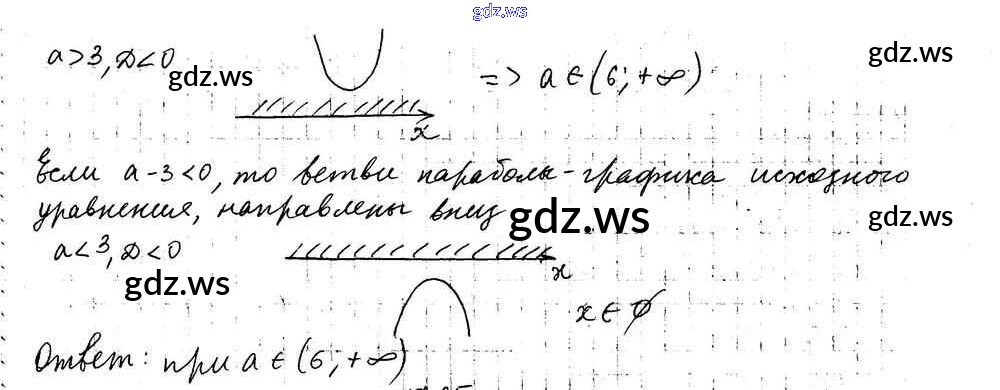 gdz.ws
a>3, D<0
gdz.ws
=> a∈(6;+∞)
gdz.ws
x
Если a-3<0, то ветви параболы-графика исходного
уравнения, направлены вниз
gdz.ws
gdz.ws
a<3, D<0
x
gdz.ws
x∈∅
Ответ: при a∈(6;+∞)